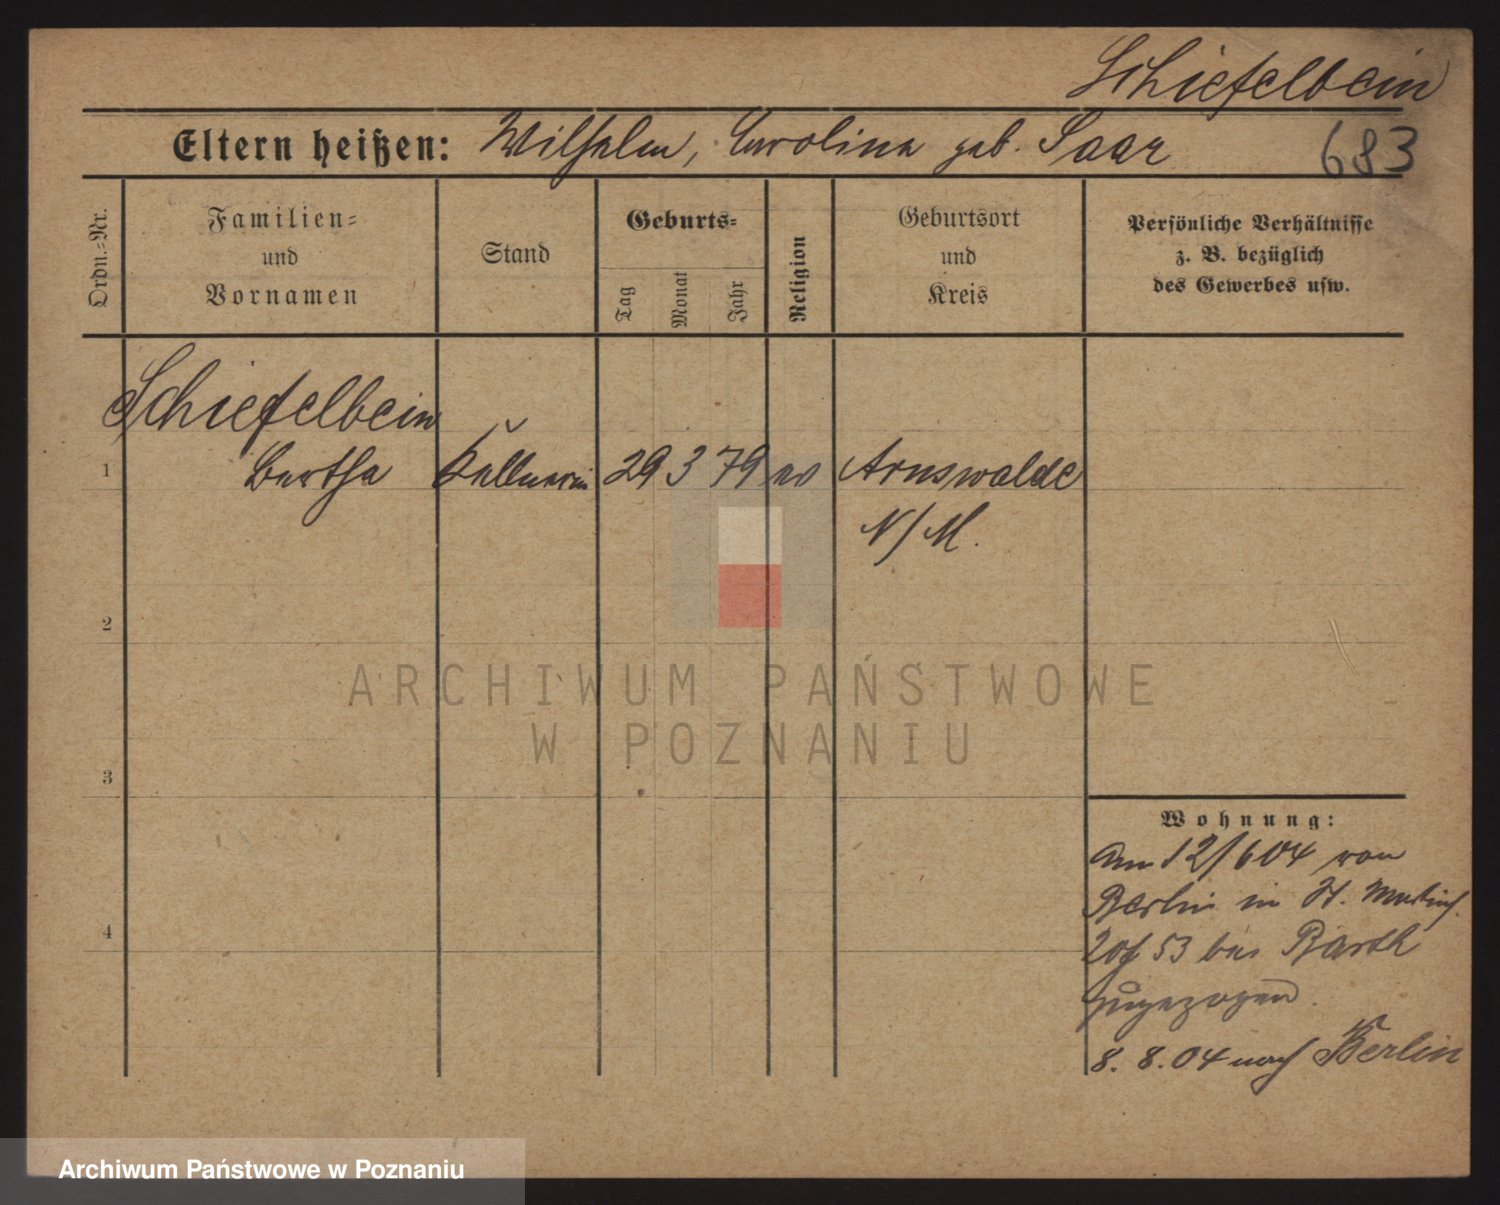 Schiefelbein
Eltern heißen: Wilhelm, Carolina geb. Saar
683
Ordn.=Nr.
Familien=
und
Vornamen
Stand
Geburts=
Tag
Monat
Jahr
Religion
Geburtsort
und
Kreis
Persönliche Verhältnisse
z. B. bezüglich
des Gewerbes usw.
Schiefelbein
1 Bertha Kellnerin 29 3 79 ev Arnswalde
N/M.
2
3
4
ARCHIWUM PAŃSTWOWE
W POZNANIU
Wohnung:
Am 12/6 04 von
Berlin in St. Martinst.
53 bei Barth
zugezogen.
8. 8. 04 nach Berlin
Archiwum Państwowe w Poznaniu